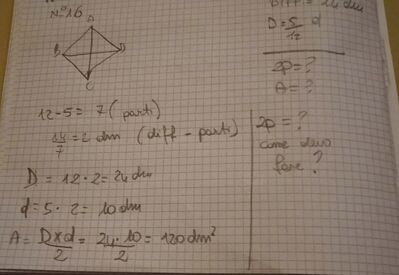 N°16
A
B
D
C
DIFF = 14 dm
D = 5/12 d
2p = ?
A = ?
12-5 = 7 (parti)
14/7 = 2 dm (diff - parti)
D = 12 · 2 = 24 dm
d = 5 · 2 = 10 dm
A = D×d/2 = 24·10/2 = 120 dm²
2p = ?
come devo
fare?